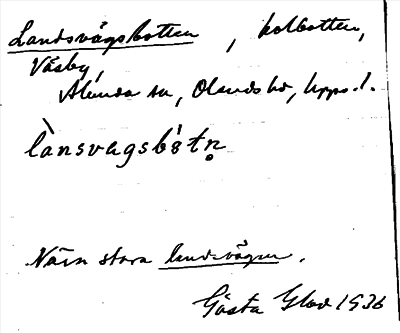 Landsvägsbotten, kolbotten,
Väsby,
Alunda sn, Olands hd, Upps. l.
lànsvagsbótn̥
Näin stora landsvägen.
Gösta Glad 1936